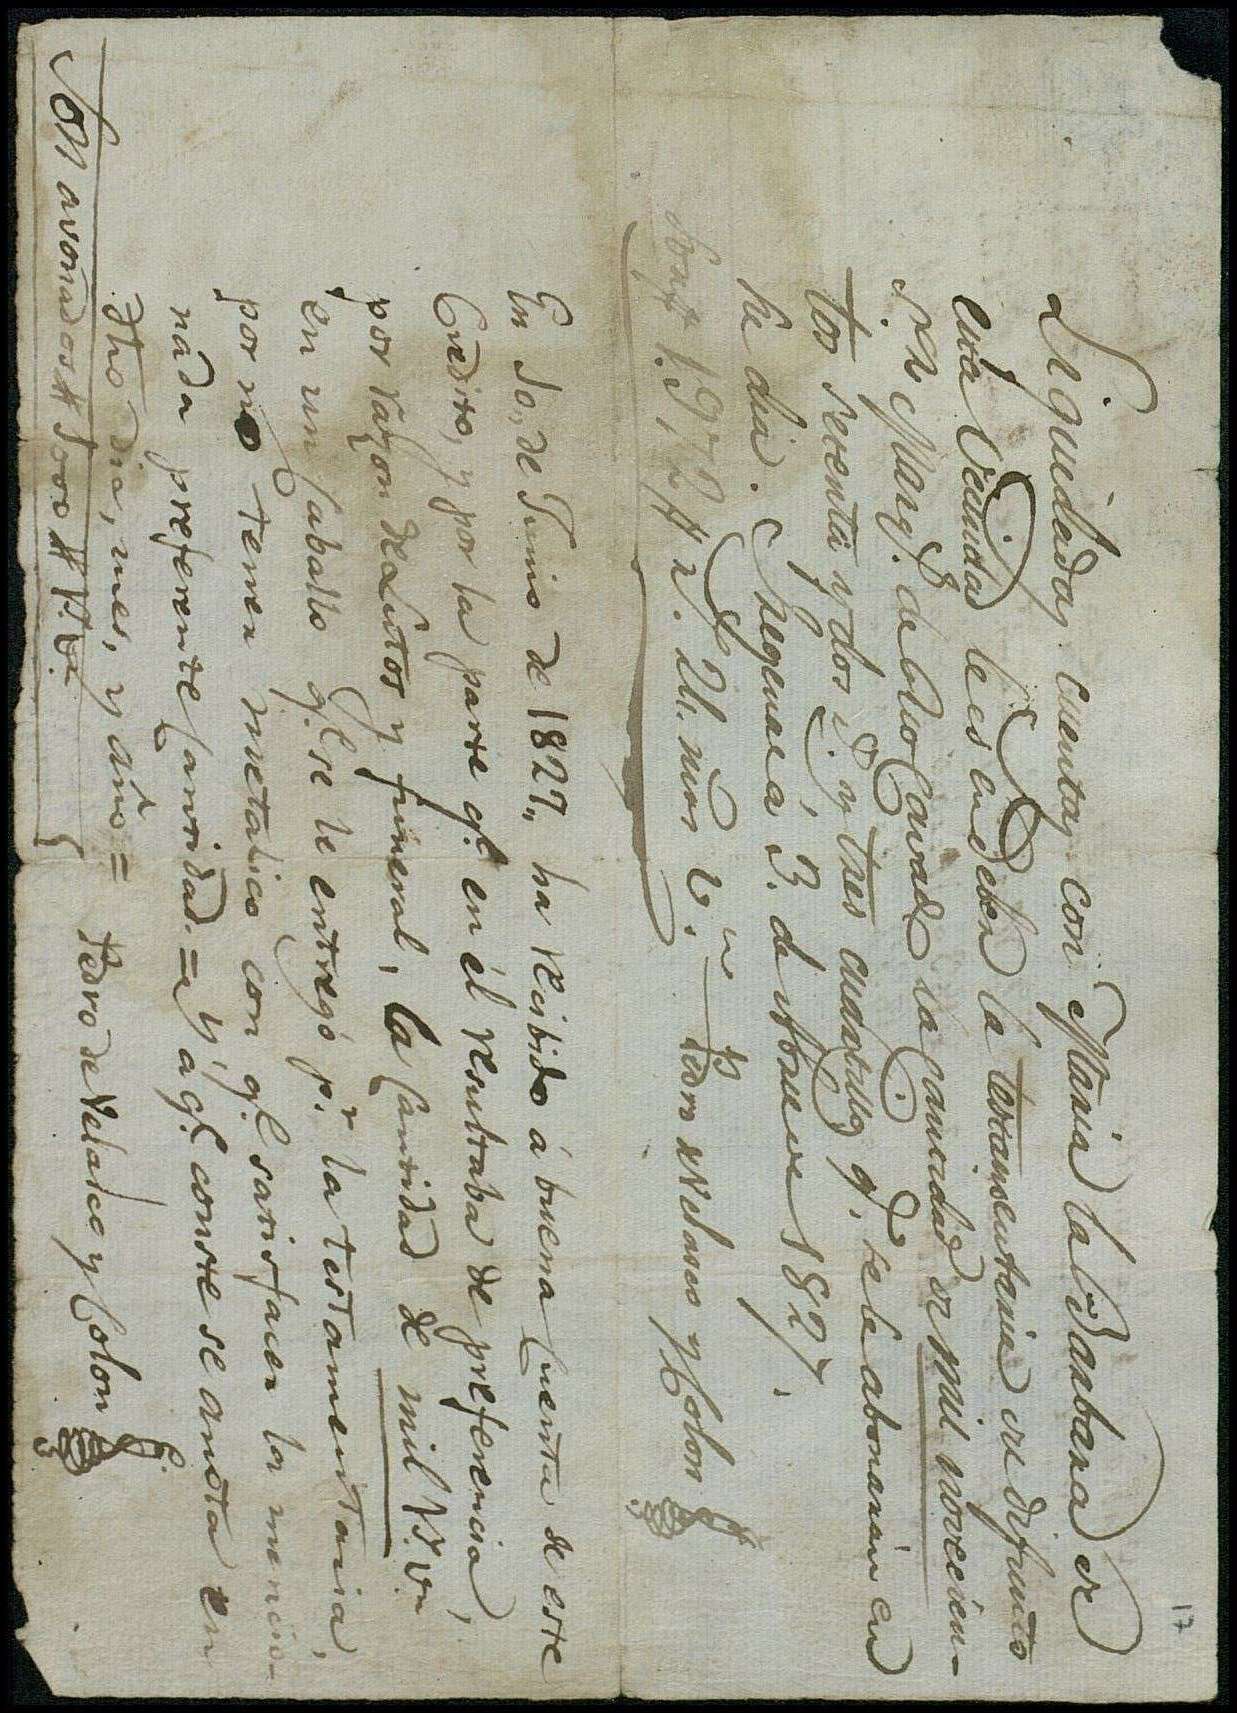 17
Liquidadas cuentas con Maria la Barbara de
esta Vecindad le es en deber la testamentaria de difunto
Sr. Marq.s de Cavad la cantidad de mil novecien-
tos setenta y dos r.s y tres cuartillos q.e se le abonarán en
su dia. 3 de 1827.
Son 1.972 r.s 24 mrs v.n Pedro Velasco y Colon
En 30,, de Junio de 1827,, ha recibido á buena Cuenta de este
Credito, y por la parte q.e en él resultaba de preferencia,
por razon de Lutos y funeral, la Cantidad de mil r.s v.n
en un Caballo q.e se le entregó p.r la testamentaria,
por no tener metalico con q.e satisfacer la mencio-
nada preferente Cantidad. = Y á q.e conste se anota en
dia, mes, y año =
Pedro de Velasco y Colon
Son avonados # 1000 # r.s v.n